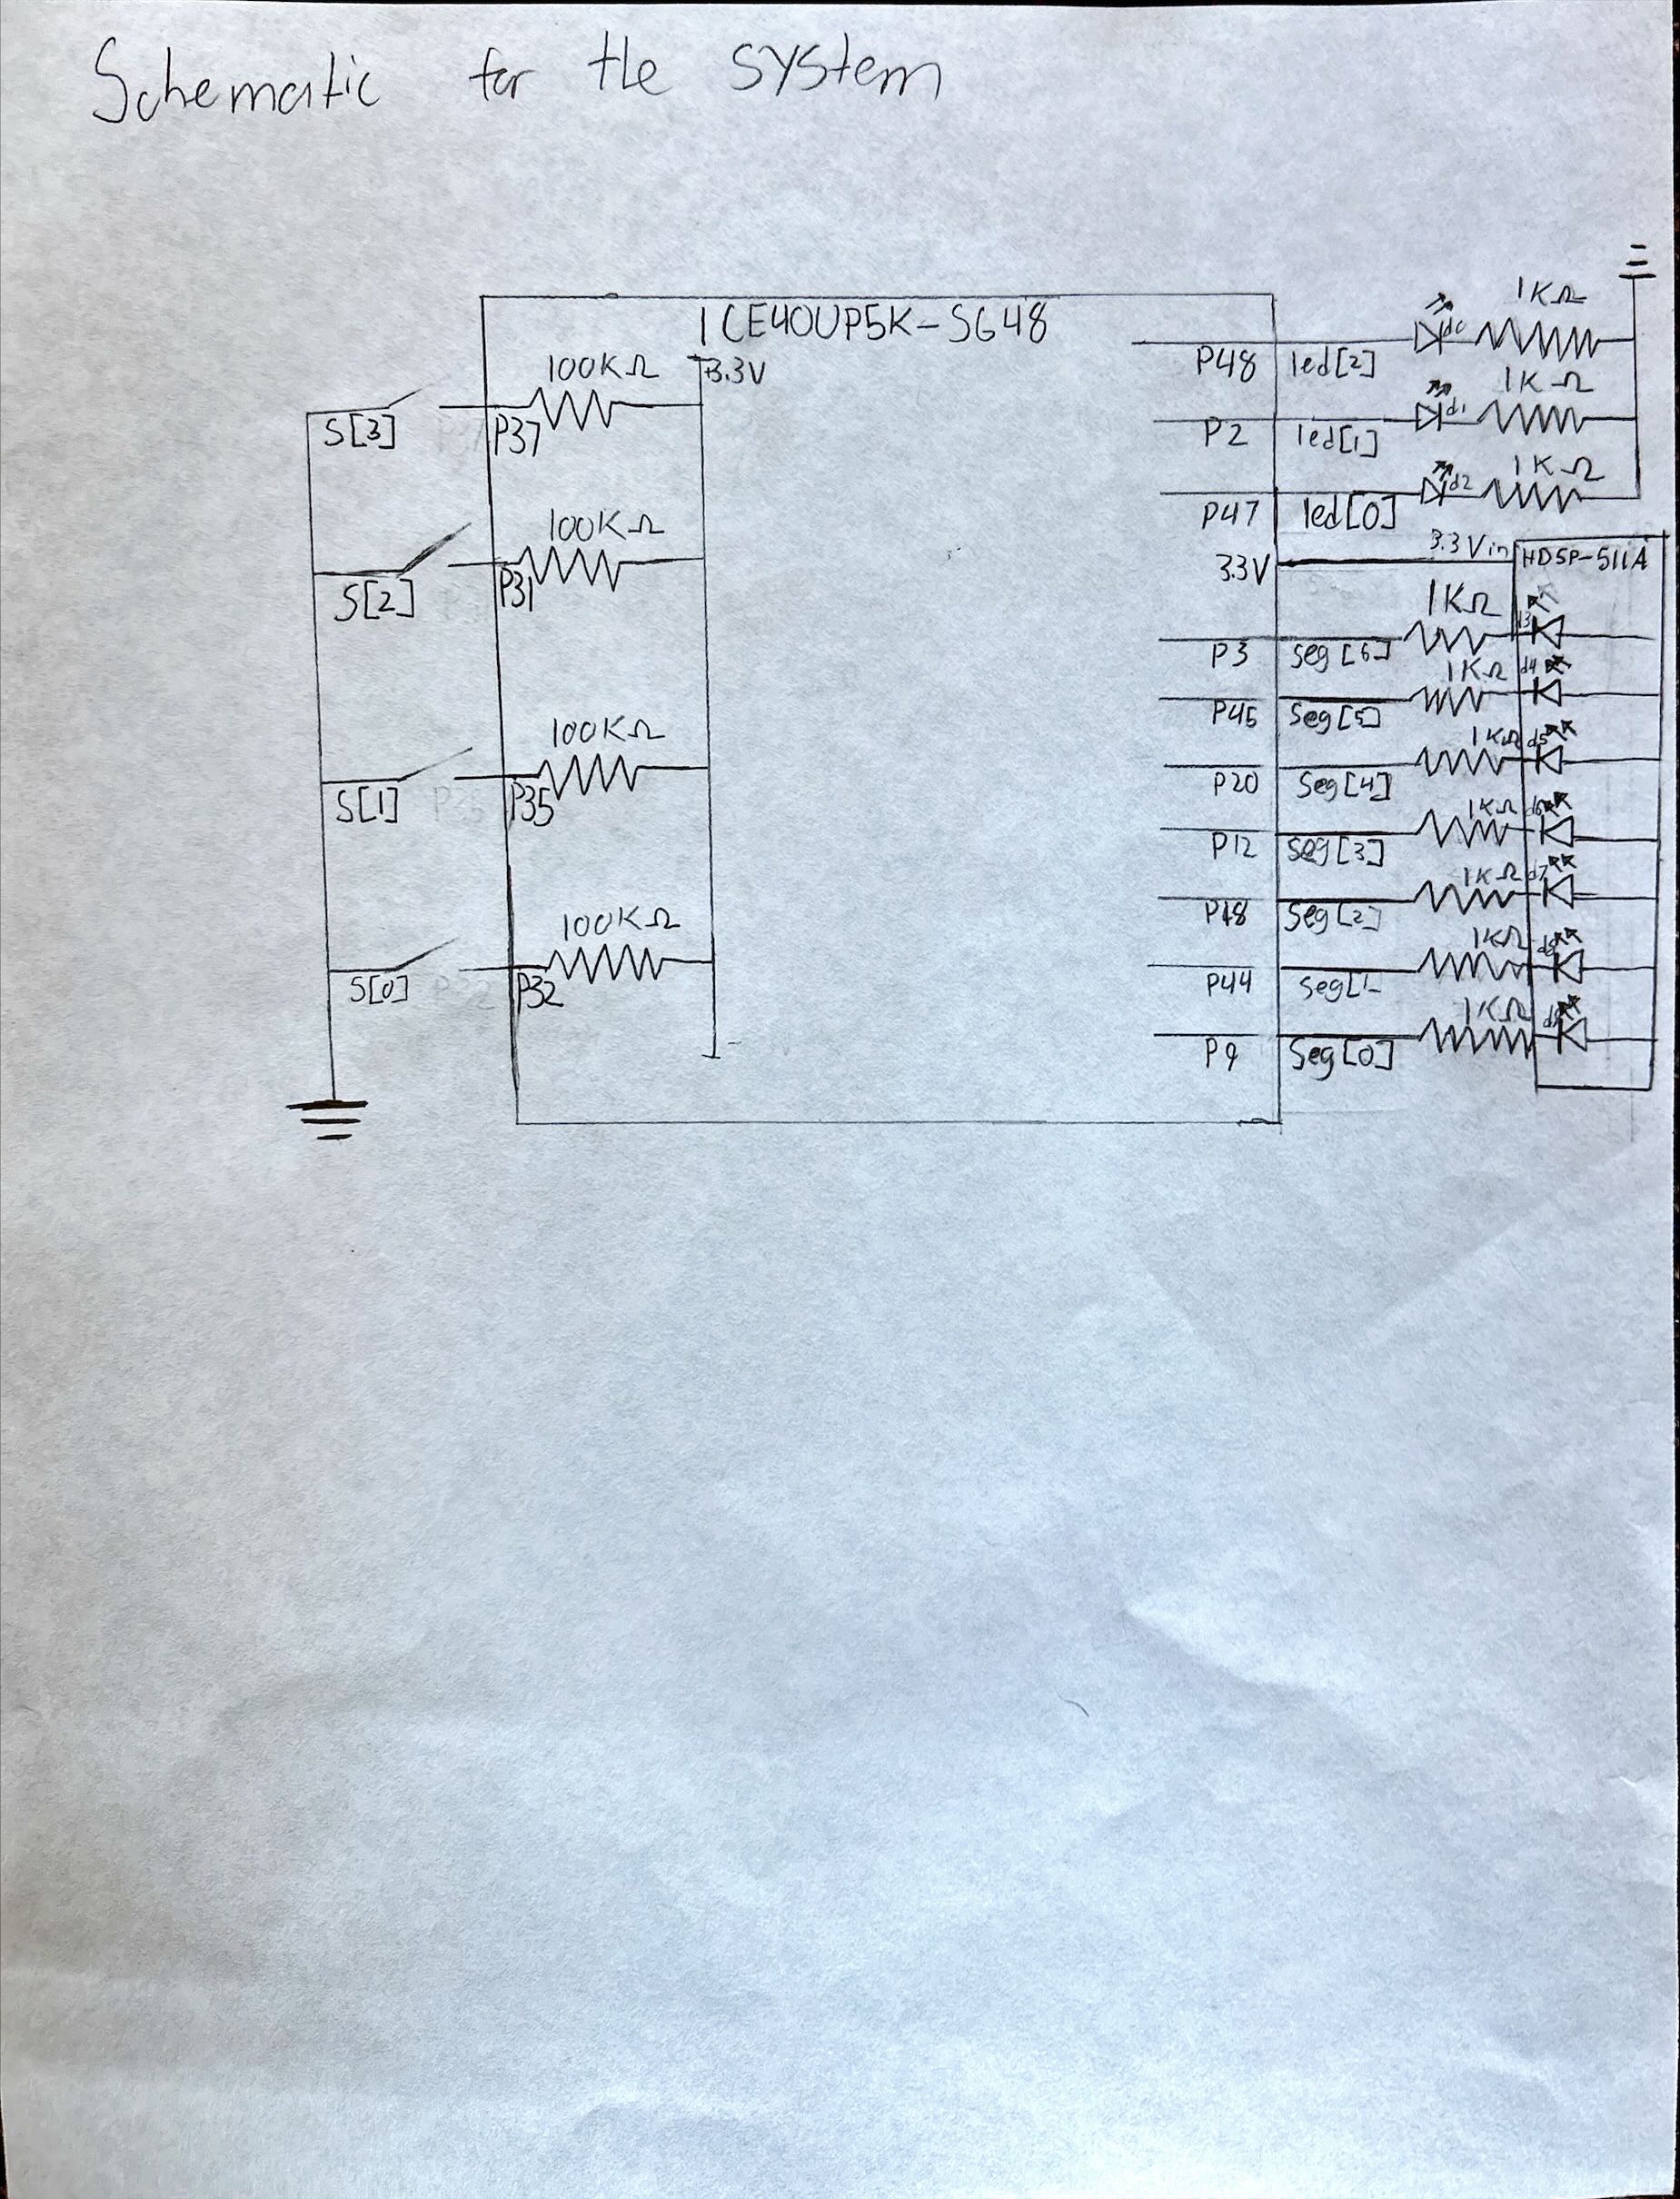 Schematic for the system
ICE40UP5K-SG48
3.3V
100KΩ
S[3]
P37
100KΩ
S[2]
P31
100KΩ
S[1]
P35
100KΩ
S[0]
P32
1KΩ
P48
led[2]
d0
1KΩ
P2
led[1]
d1
1KΩ
P47
led[0]
d2
3.3V
3.3Vin
HDSP-511A
1KΩ
P3
seg[6]
1KΩ
d4
P45
seg[5]
1KΩ
d5
P20
Seg[4]
1KΩ
d6
P12
seg[3]
1KΩ
d7
P18
Seg[2]
1KΩ
d8
P44
seg[1
1KΩ
P9
Seg[0]